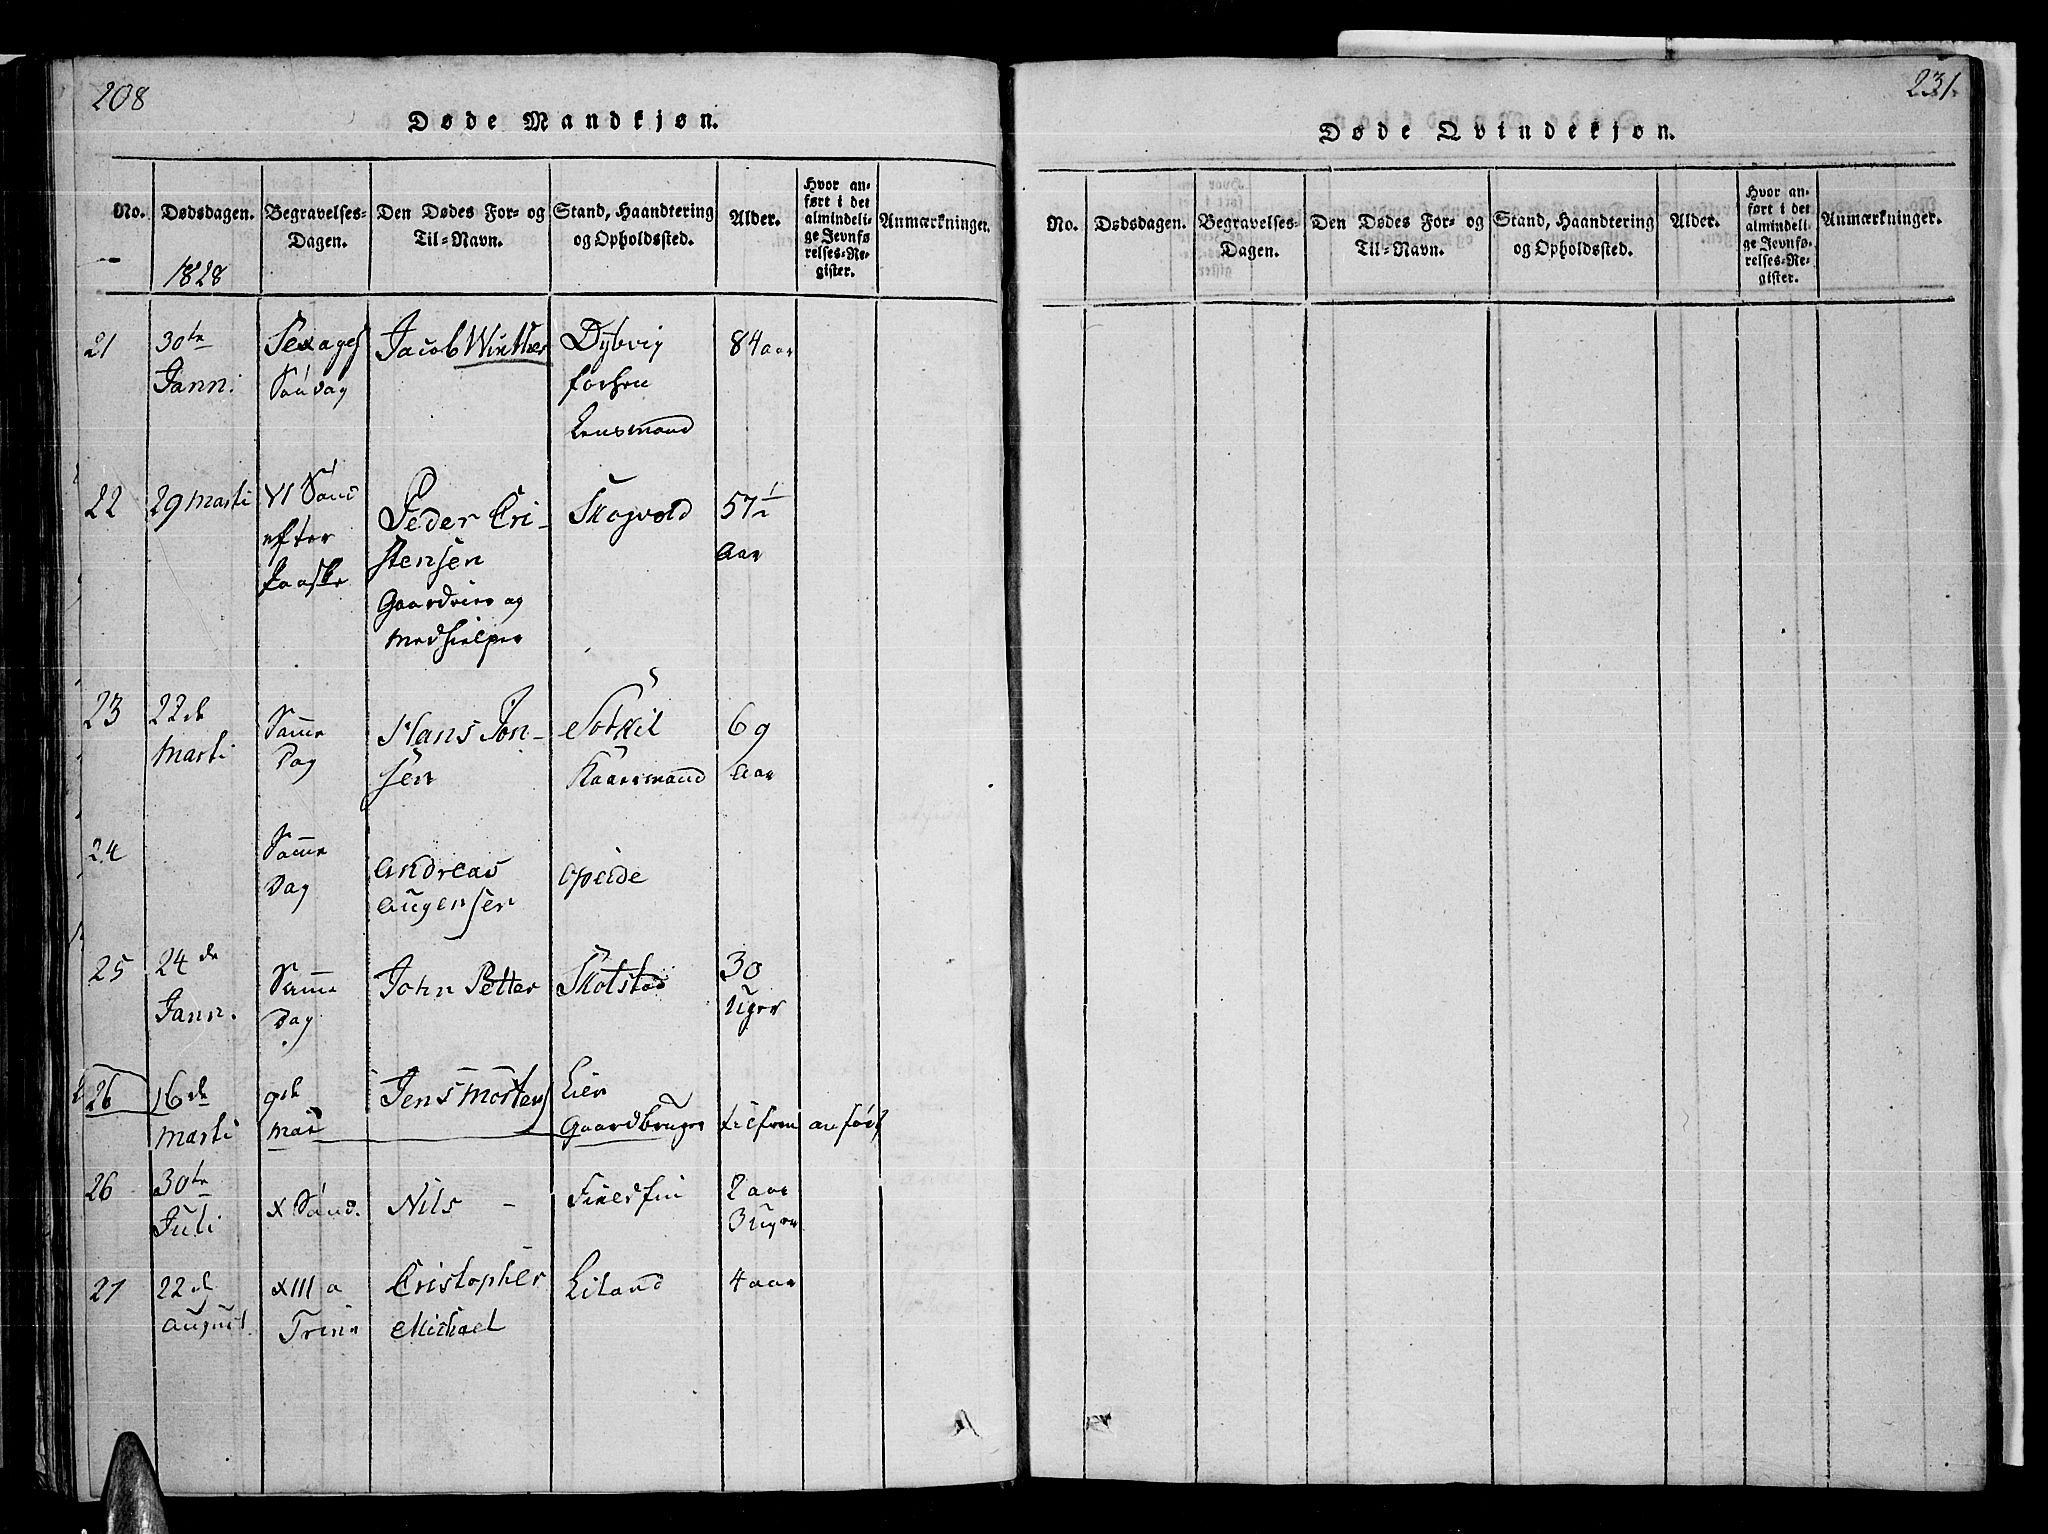 208
Døde Mandkjøn.
No.
Dødsdagen.
Begravelses-
Dagen.
Den Dødes For- og
Til-Navn.
Stand, Haandtering
og Opholdssted.
Alder.
Hvor an-
ført i det
almindeli-
ge Jevnfø-
relses-Re-
gister.
Anmærkninger.
1828
21
30te
Jann:
Sexages
Søndag
Jacob Winther
Dybvig
forhen
Lensmand
84 aar
22
29 Marti
VI Sønd
efter
Paaske
Peder Cri-
stensen
Gaardeier og
Medhielper
Skogvold
57½
Aar
23
22de
Marti
Samme
Dag
Hans Jon-
sen
Kaarmand
69
Aar
24
Samme
Dag
Andreas
Augensen
opeide
25
24de
Jann.
Samme
Dag
John Petter
Skotstad
30
Uger
26
16de
Marti
9de
Mai
Jens Mortens
Lien
Gaardbruger
tilforn anført
26
30te
Juli
X Sønd.
Nils -
Finedfiu
2 aar
3 Uger
27
22de
August
XIII a
Trin
Cristopher
Michael
Eiland
4 aar
231.
Døde Qvindekjøn.
No.
Dødsdagen.
Begravelses-
Dagen.
Den Dødes For- og
Til-Navn.
Stand, Haandtering
og Opholdssted.
Alder.
Hvor an-
ført i det
almindeli-
ge Jevnfø-
relses-Re-
gister.
Anmærkninger.